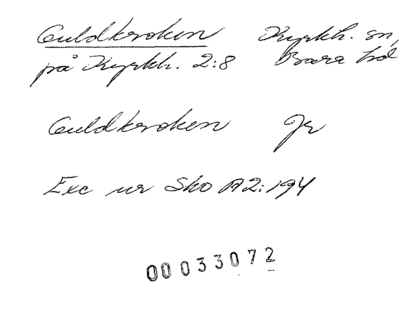 Guldkroken Kyrkh. sn,
på Kyrkh. 2:8 Bara hd
Guldkroken Jr
Exc ur Sko A2:194
00033072